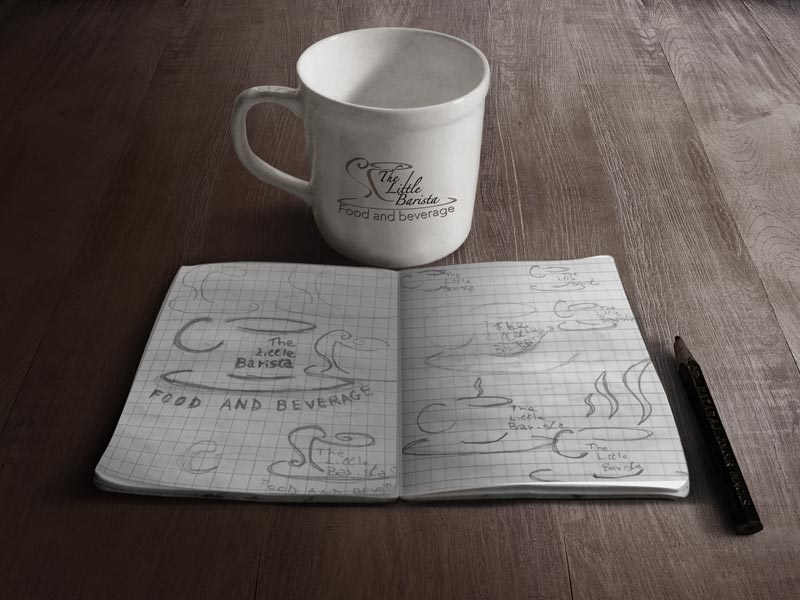 The
Little
Barista
Food and beverage
The
Little
Barista
FOOD AND BEVERAGE
The
Little
Barista
Food AND
The
Little
Barista
The
Little
Barista
The
Little
Barista
The
Little
Barista